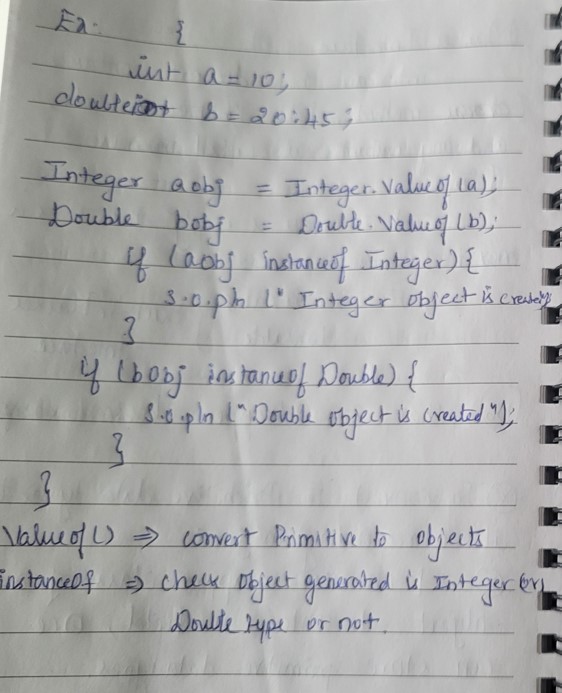 Ex: {
int a = 10;
double b = 20.45;
Integer aobj = Integer.Valueof(a);
Double bobj = Double.Valueof(b);
if (aobj instanceof Integer) {
S.o.pln (" Integer object is created");
}
if (bobj instanceof Double) {
S.o.pln ("Double object is created");
}
}
Valueof() => convert Primitive to objects
instanceof => check object generated is Integer (or)
Double type or not.